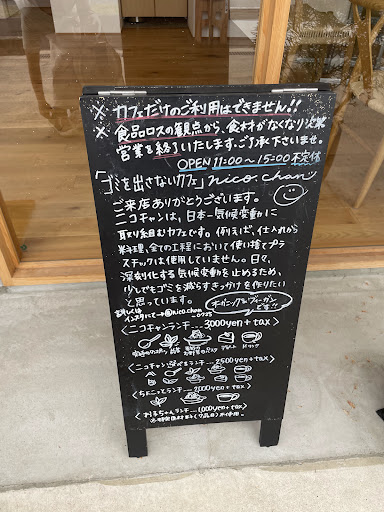 ※ カフェだけのご利用はできません!!
※ 食品ロスの観点から、食材がなくなり次第
営業を終了いたします。ご了承下さいませ。
OPEN 11:00〜15:00 不定休
「ゴミを出さないカフェ」nico chan
ご来店ありがとうございます。
ニコチャンは、日本一気候変動に
取り組むカフェです。例えば、仕入れから
料理、全ての工程において使い捨てプラ
スチックは使用していません。日々、
深刻化する気候変動を止めるため、
少しでもゴミを減らすきっかけを作りたい
と思っています。
オーガニック&ヴィーガンです!!
詳しくは
インスタにて→@nico.chan
0725
<ニコチャンランチ… 3000yen+tax>
デザート
ドリンク
<ニコチャン ランチ… 2500yen+tax>
<ちょこっとランチ… 2000yen+tax>
<お子ちゃんランチ… 1000yen+tax>